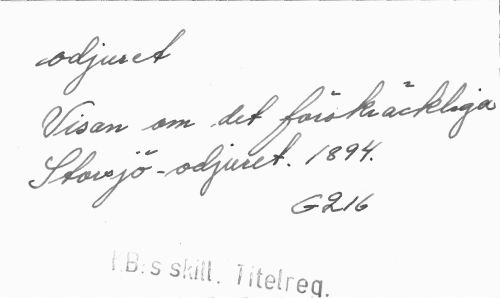 odjuret
Visan om det förskräckliga
Storsjö-odjuret. 1894.
G216
K.B:s skill. Titelreg.